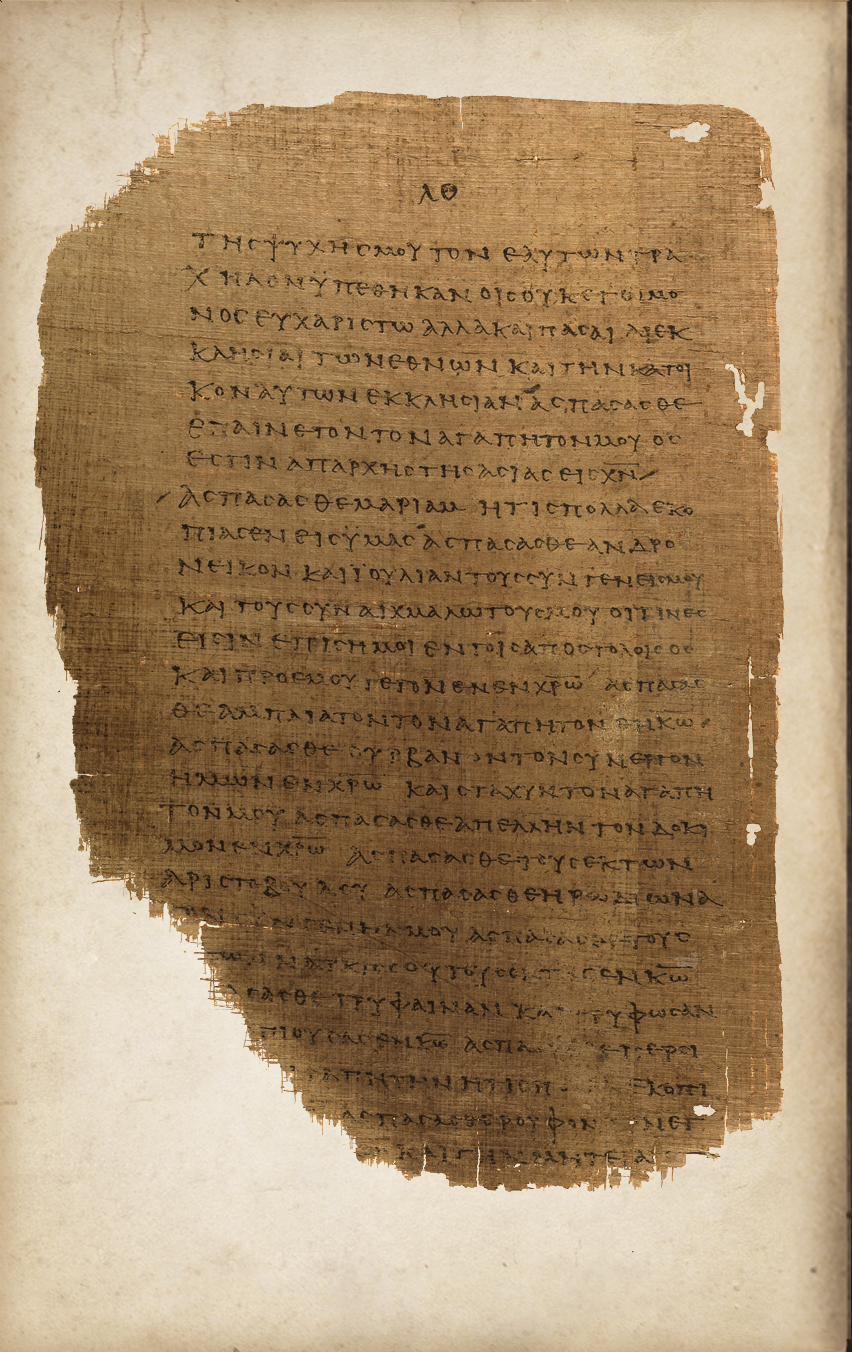 ΛΘ
ΤΗСΨΥΧΗСΜΟΥ ΤΟΝ ΕΑΥΤΩΝΤΡΑ
ΧΗΛΟΝΫΠΕΘΗΚΑΝ ΟΙС ΟΥΚΕΓΩΜΟ
ΝΟС ΕΥΧΑΡΙСΤΩ ΑΛΛΑΚΑΙΠΑСΑΙ ΑΙΕΚ
ΚΛΗСΙΑΙ ΤΩΝΕΘΝΩΝ ΚΑΙΤΗΝΚΑΤΟΙ
ΚΟΝ ΑΥΤΩΝΕΚΚΛΗСΙΑΝ ΑСΠΑСΑСΘΕ
ΕΠΑΙΝΕΤΟΝΤΟΝΑΓΑΠΗΤΟΝΜΟΥ ΟС
ΕСΤΙΝ ΑΠΑΡΧΗСΤΗСΑСΙΑС ΕΙСΧΝ
ΑСΠΑСΑСΘΕΜΑΡΙΑΜ ΗΤΙСΠΟΛΛΑΕΚΟ
ΠΙΑСΕΝ ΕΙСΫΜΑС ΑСΠΑСΑСΘΕ ΑΝΔΡΟ
ΝΕΙΚΟΝ ΚΑΙΪΟΥΛΙΑΝΤΟΥССΥΝΓΕΝΕΙСΜΟΥ
ΚΑΙ ΤΟΥССΥΝΑΙΧΜΑΛΩΤΟΥСΜΟΥ ΟΙΤΙΝΕС
ΕΙСΙΝ ΕΠΙСΗΜΟΙ ΕΝΤΟΙСΑΠΟСΤΟΛΟΙС ΟС
ΚΑΙΠΡΟΕΜΟΥ ΓΕΓΟΝΕΝΕΝΧΡΩ ΑСΠΑСΑС
ΘΕ ΑΜΠΛΙΑΤΟΝΤΟΝΑΓΑΠΗΤΟΝ ΕΝΚΩ
ΑСΠΑСΑСΘΕ ΟΥΡΒΑΝΟΝΤΟΝСΥΝΕΡΓΟΝ
ΗΜΩΝΕΝΧΡΩ ΚΑΙСΤΑΧΥΝΤΟΝΑΓΑΠΗ
ΤΟΝΜΟΥ ΑСΠΑСΑСΘΕΑΠΕΛΛΗΝ ΤΟΝ ΔΟΚΙ
ΜΟΝΕΝΧΡΩ ΑСΠΑСΑСΘΕΤΟΥСΕΚΤΩΝ
ΑΡΙСΤΟΒΟΥΛΟΥ ΑСΠΑСΑСΘΕΗΡΩΔΙΩΝΑ
ΜΟΥ ΑСΠΑСΑСΘΕΤΟΥС
ΕΝΚΩ
ΑСΑСΘΕ ΤΡΥΦΑΙΝΑΝ ΚΑΙ ΤΡΥΦΩСΑΝ
ΠΙΟΥСΑСΕΝΚΩ ΑСΠΑ ΠΕΡСΙ
ΑΓΑΠΗΤΗΝ ΗΤΙС ΕΚΟΠΙ
ΑСΠΑСΑСΘΕΡΟΥΦΟΝ
ΚΑΙΤΗΝ